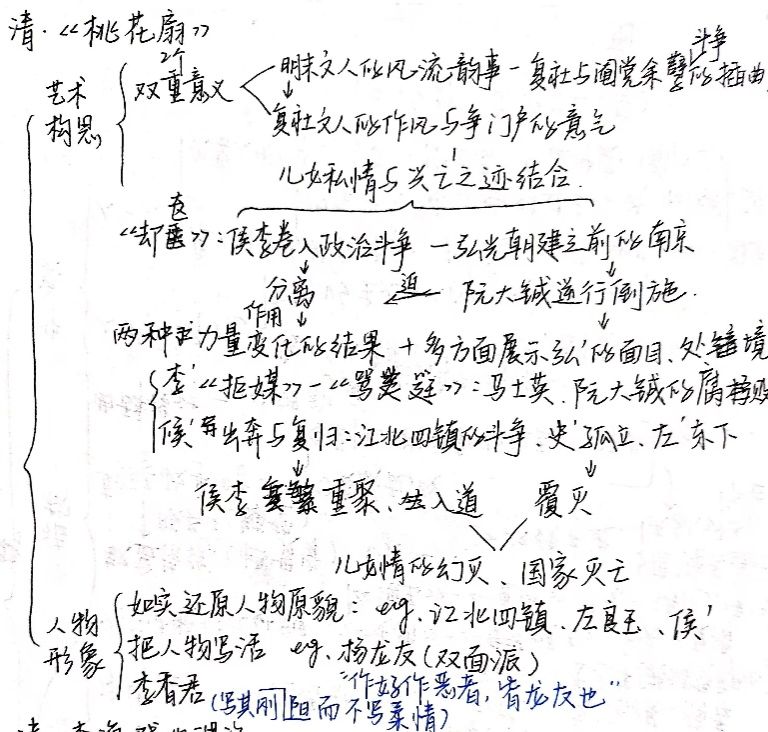 清·《桃花扇》
艺术构思
双重意义
2个
明末文人的风流韵事－复社与阉党余孽的插曲
斗争
复社文人的作风与争门户的意气
儿女私情与兴亡之迹结合.
《却奁》：侯李卷入政治斗争－弘光朝建立前的南京
分离 迫 阮大铖逆行倒施.
作用
两种力量变化的结果＋多方面展示弘'的面目、处境
李'《拒媒》－《骂筵》：马士英、阮大铖的腐败
侯'出奔与复归：江北四镇的斗争、史'孤立、左'东下
侯李重聚、入道 覆灭
儿女情的幻灭、国家灭亡
人物形象
如实还原人物原貌：eg.江北四镇、左良玉、侯'
把人物写活 eg.杨龙友（双面派）
李香君 "作好作恶者，皆龙友也"
（写其刚阳而不写柔情）